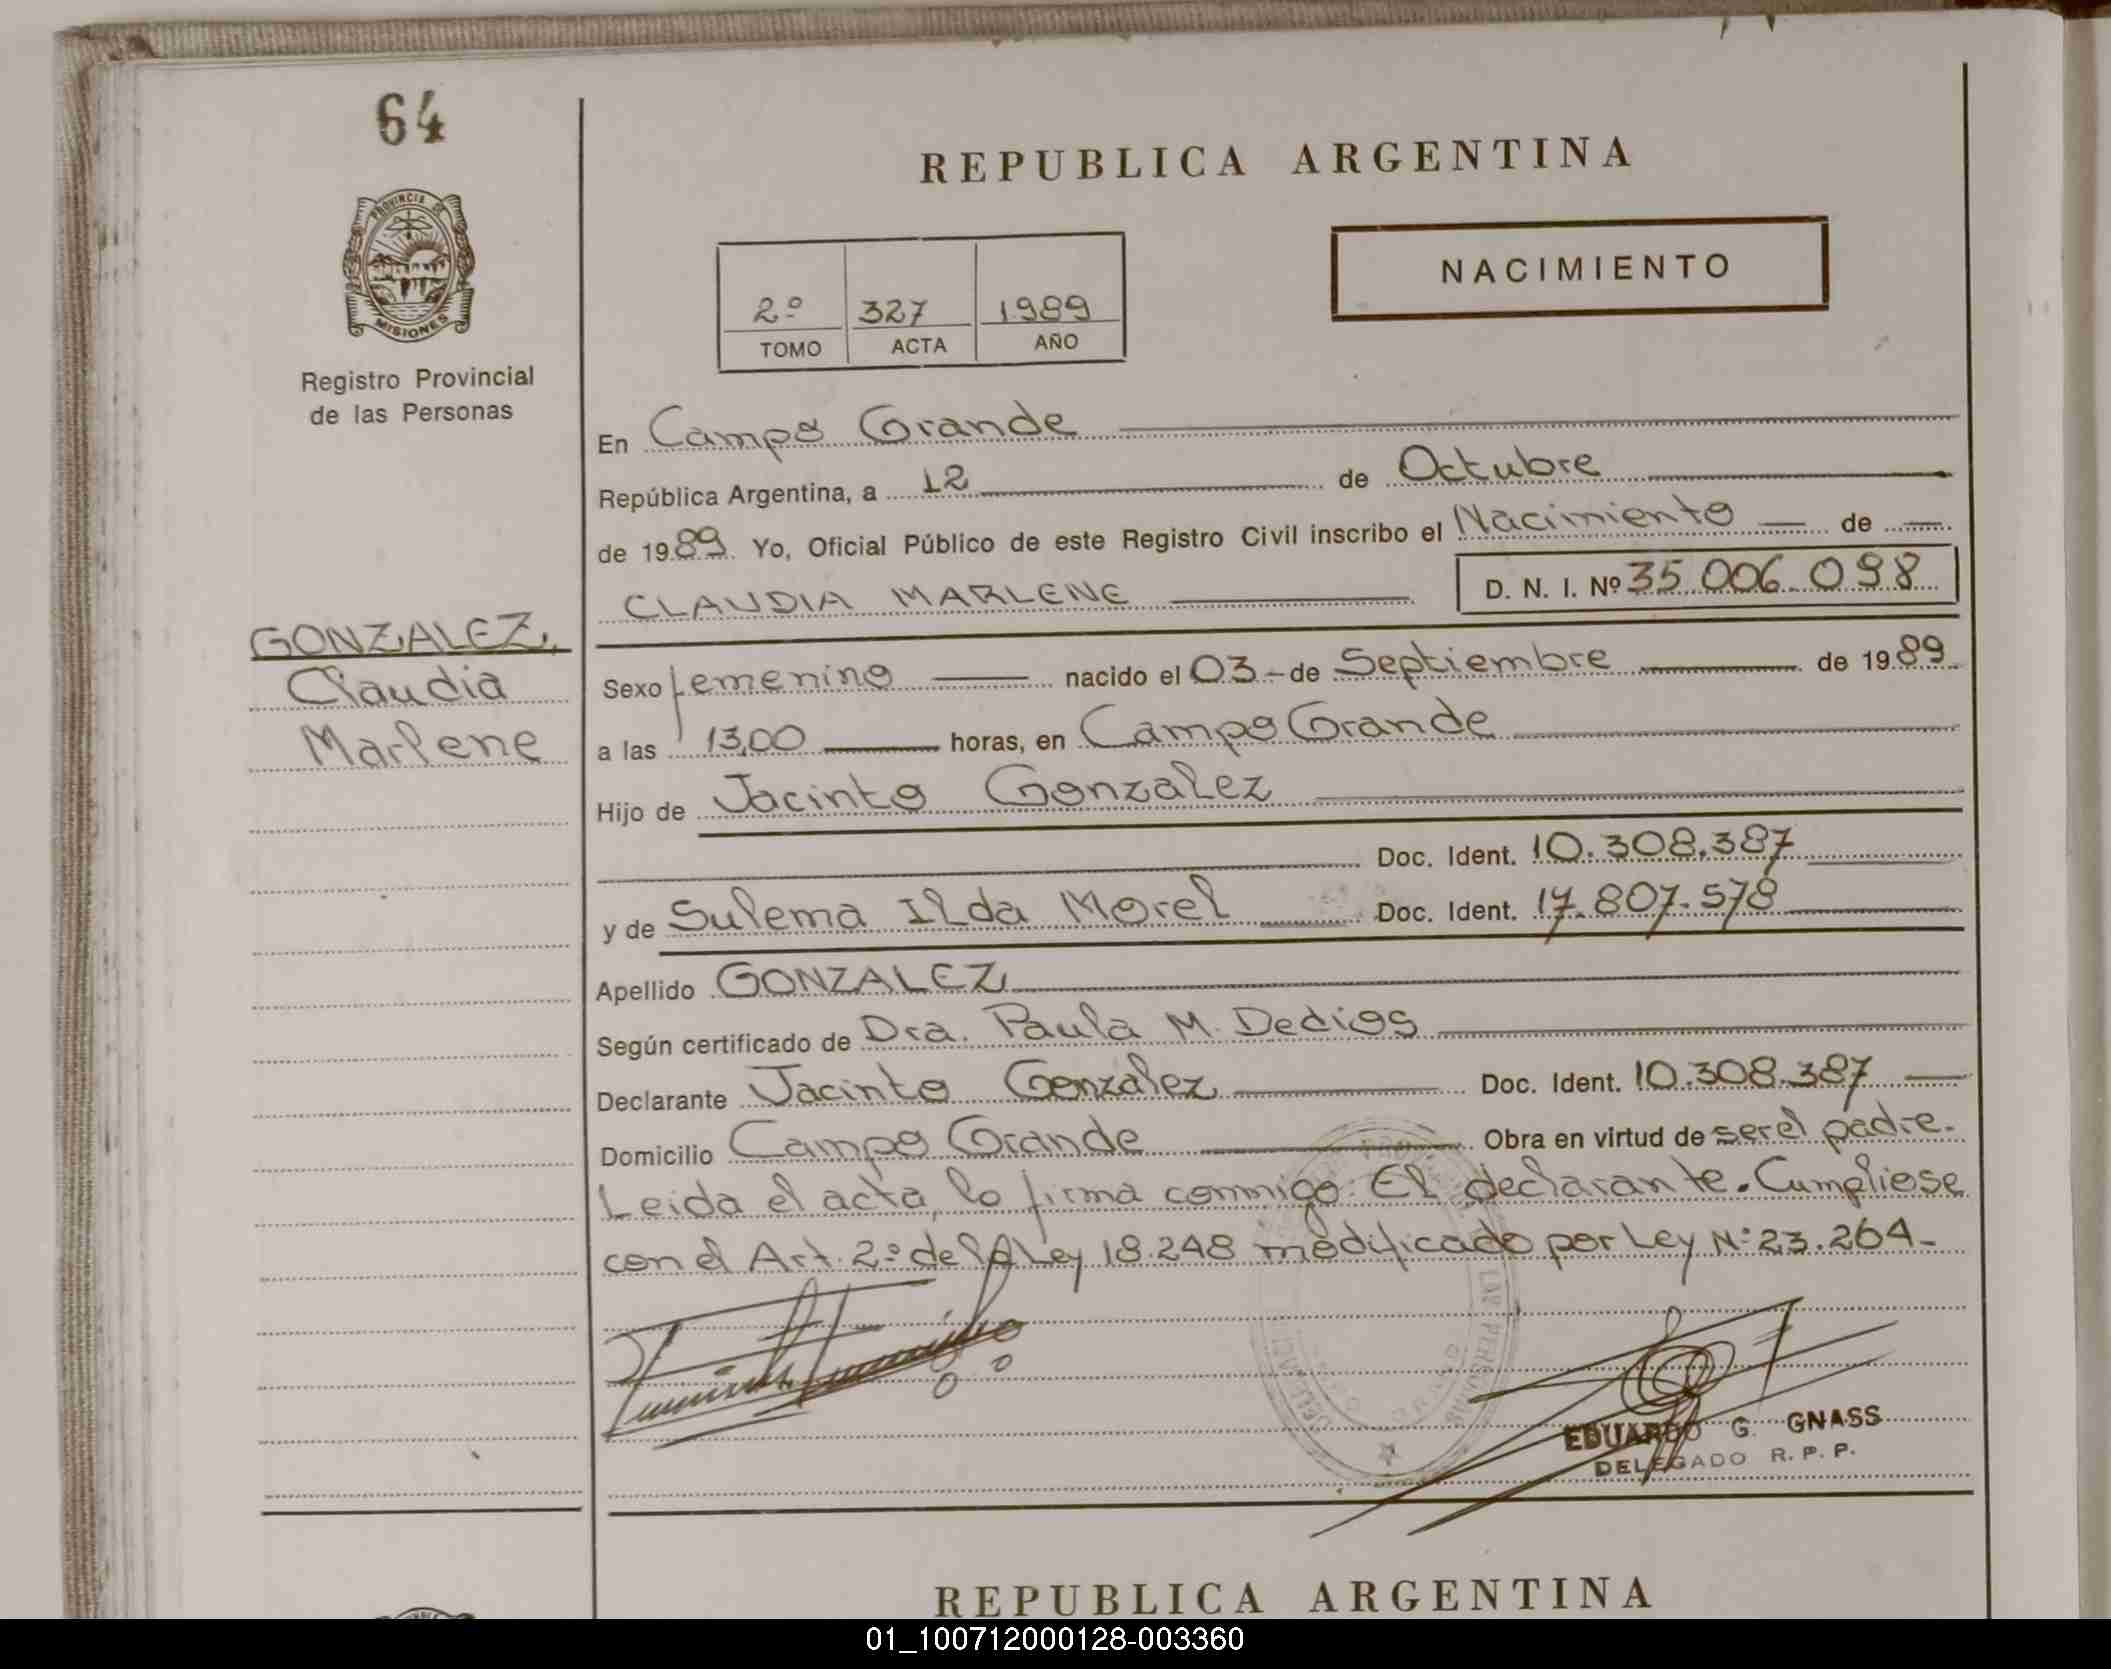 64
REPUBLICA ARGENTINA
PROVINCIA DE
MISIONES
Registro Provincial
de las Personas
2º 327 1989
TOMO ACTA AÑO
NACIMIENTO
En Campo Grande
República Argentina, a 12 de Octubre
de 1989 Yo, Oficial Público de este Registro Civil inscribo el Nacimiento de
CLAUDIA MARLENE D. N. I. Nº 35.006.098
GONZALEZ,
Claudia
Marlene
Sexo femenino nacido el 03 de Septiembre de 1989
a las 13,00 horas, en Campo Grande
Hijo de Jacinto Gonzalez
Doc. Ident. 10.308.387
y de Sulema Ilda Morel Doc. Ident. 17.807.578
Apellido GONZALEZ
Según certificado de Dra. Paula M. Dedios
Declarante Jacinto Gonzalez Doc. Ident. 10.308.387
Domicilio Campo Grande Obra en virtud de ser el padre.
Leida el acta, lo firma conmigo. El declarante. Cumpliose
con el Art. 2º de la Ley 18.248 modificado por Ley Nº 23.264-
LAS PERSONAS
EDUARDO G. GNASS
DELEGADO R. P. P.
REPUBLICA ARGENTINA
01_100712000128-003360